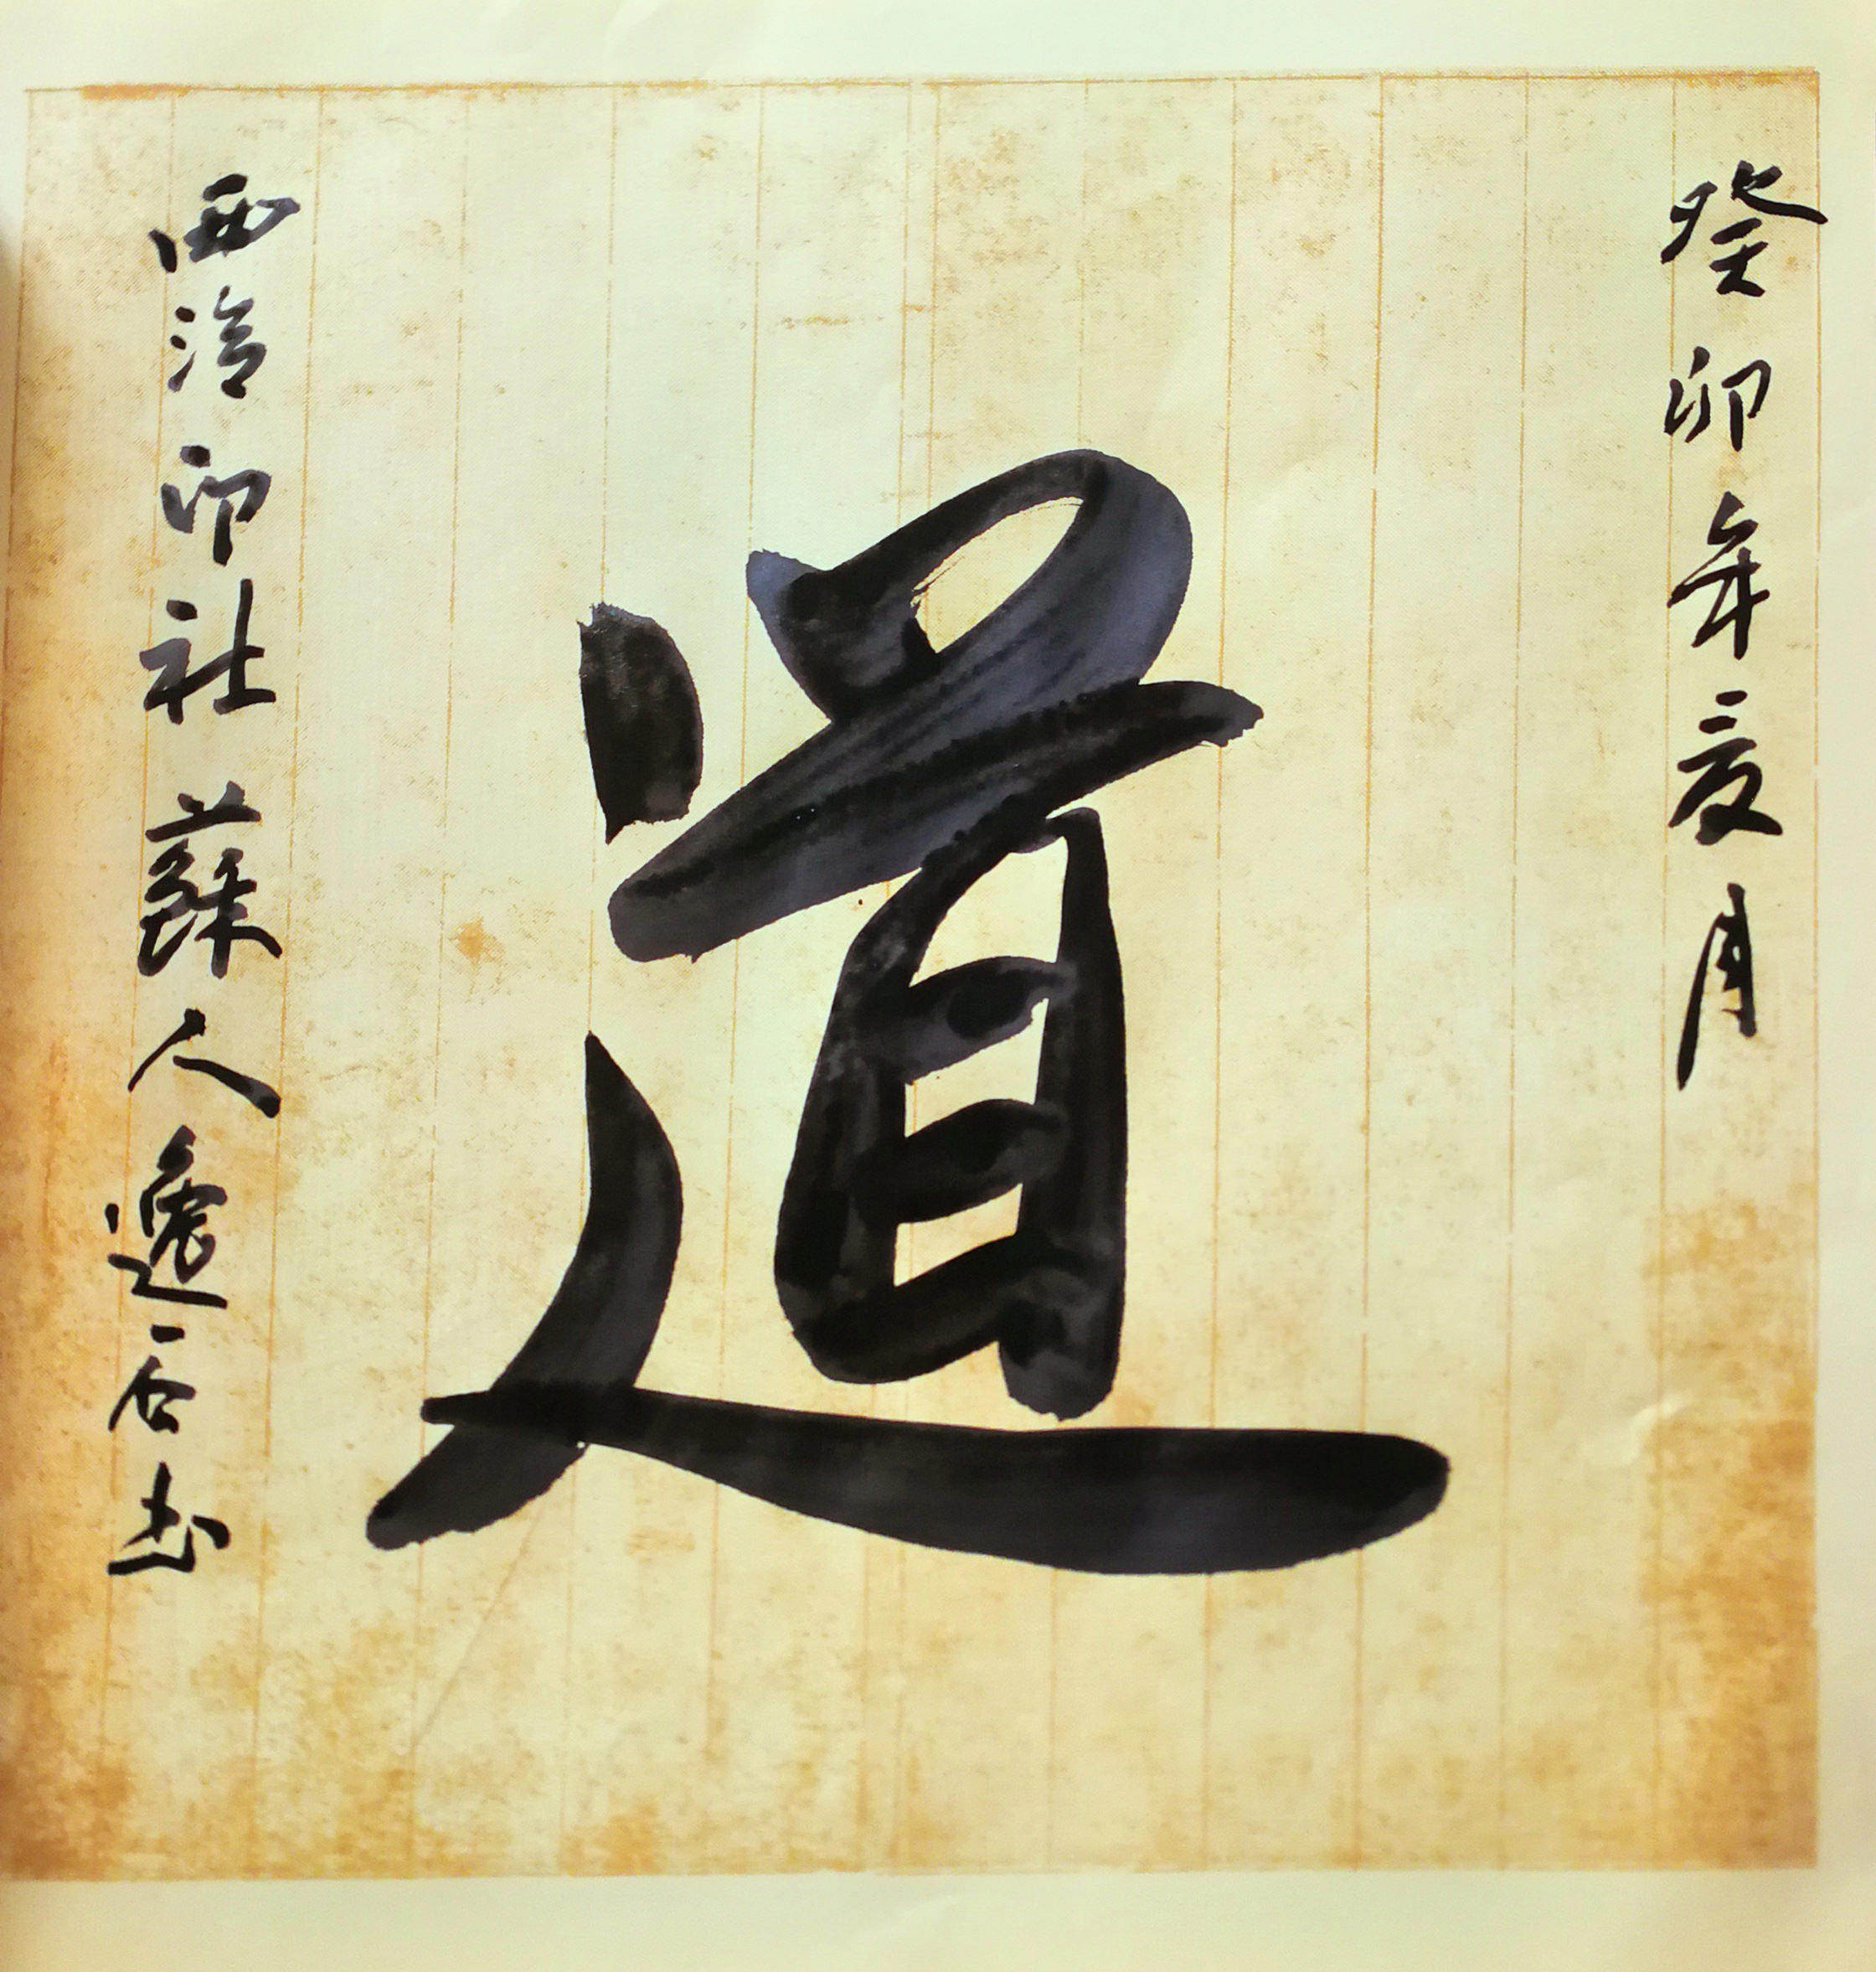 癸卯年夏月
道
西泠印社蘇人逸石书